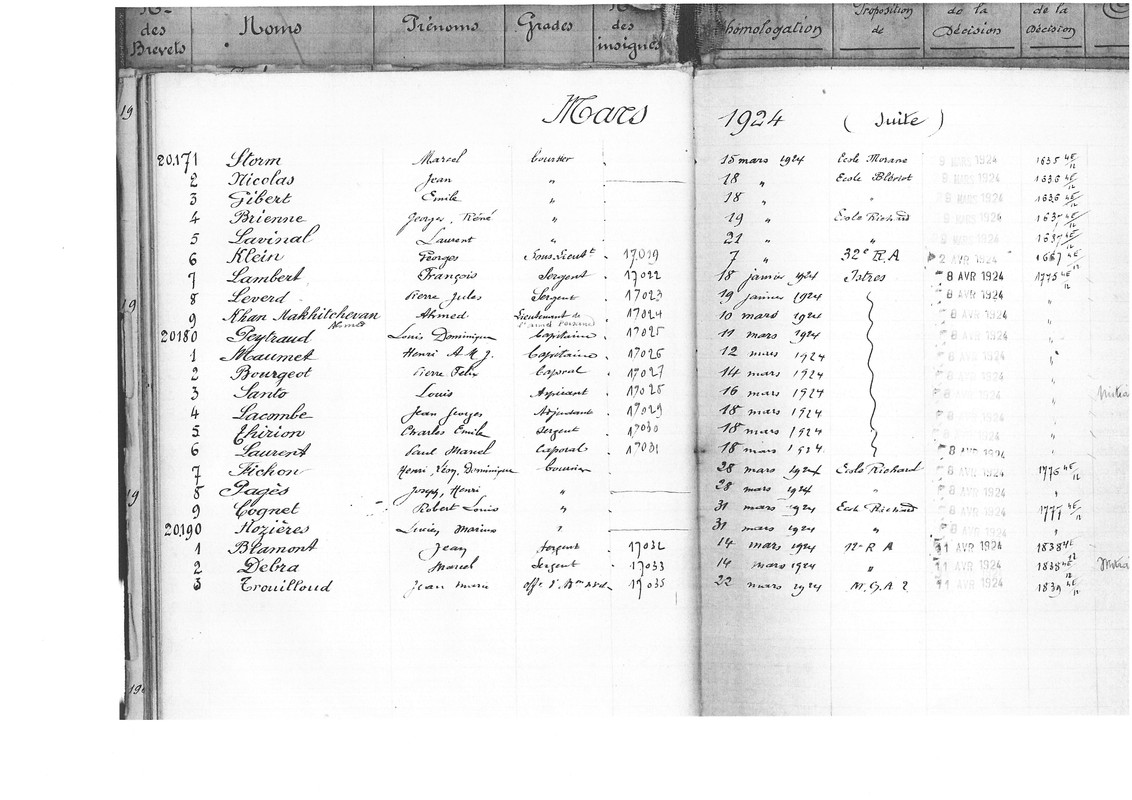 des Brevets Noms Prénoms Grades des insignes homologation Proposition de de la Décision de la Décision
Mars 1924 (suite)
20.171 Storm Marcel boursier 15 mars 1924 Ecole Morane 1924 1635
2 Nicolas Jean " 18 " Ecole Blériot MARS 1924 1636
3 Gibert Emile " 18 " " 8 MARS 1924 1636
4 Brienne Georges, Réné " 19 " Ecole Richard MARS 1924
5 Lavinal Laurent " 21 " " MARS 1924
6 Klein Georges Sous Lieutt 17019 7 " 32e R.A 2 AVR 1924
7 Lambert François Sergent 17022 18 janvier 1924 Istres 8 AVR 1924 1775
8 Leverd Pierre Jules Sergent 17023 19 janvier 1924 8 AVR 1924 "
9 Khan Makhitchevan Ahmed Lieutenant de 17024 10 mars 1924 8 AVR 1924 "
20180 Peytraud Louis Dominique Capitaine 17025 11 mars 1924 8 AVR 1924 "
1 Maumet Henri Capitaine 17026 12 mars 1924 8 AVR 1924 "
2 Bourgeot Pierre Felix Caporal 17027 14 mars 1924 8 AVR 1924 "
3 Santo Louis Aspirant 17028 16 mars 1924 8 AVR 1924 "
4 Lacombe Jean Georges Adjudant 17029 18 mars 1924 8 AVR 1924 "
5 Thirion Charles Emile Sergent 17030 18 mars 1924 8 AVR 1924 "
6 Laurent Paul Marcel Caporal 17031 18 mars 1924 8 AVR 1924 "
7 Fichon Henri, Rémy, Dominique boursier 28 mars 1924 Ecole Richard 8 AVR 1924 1776
8 Pagès Joseph, Henri " 28 mars 1924 " 8 AVR 1924 "
9 Cognet Robert Louis " 31 mars 1924 Ecole Richard 8 AVR 1924 1777
20.190 Mozières Lucien Marius " 31 mars 1924 " 8 AVR 1924 "
1 Blamont Jean Sergent 17032 14 mars 1924 12e R A 11 AVR 1924 1838
2 Debra Marcel Sergent 17033 14 mars 1924 " 11 AVR 1924 1838
3 Trouilloud Jean Marie 17035 22 mars 1924 11 AVR 1924 1839